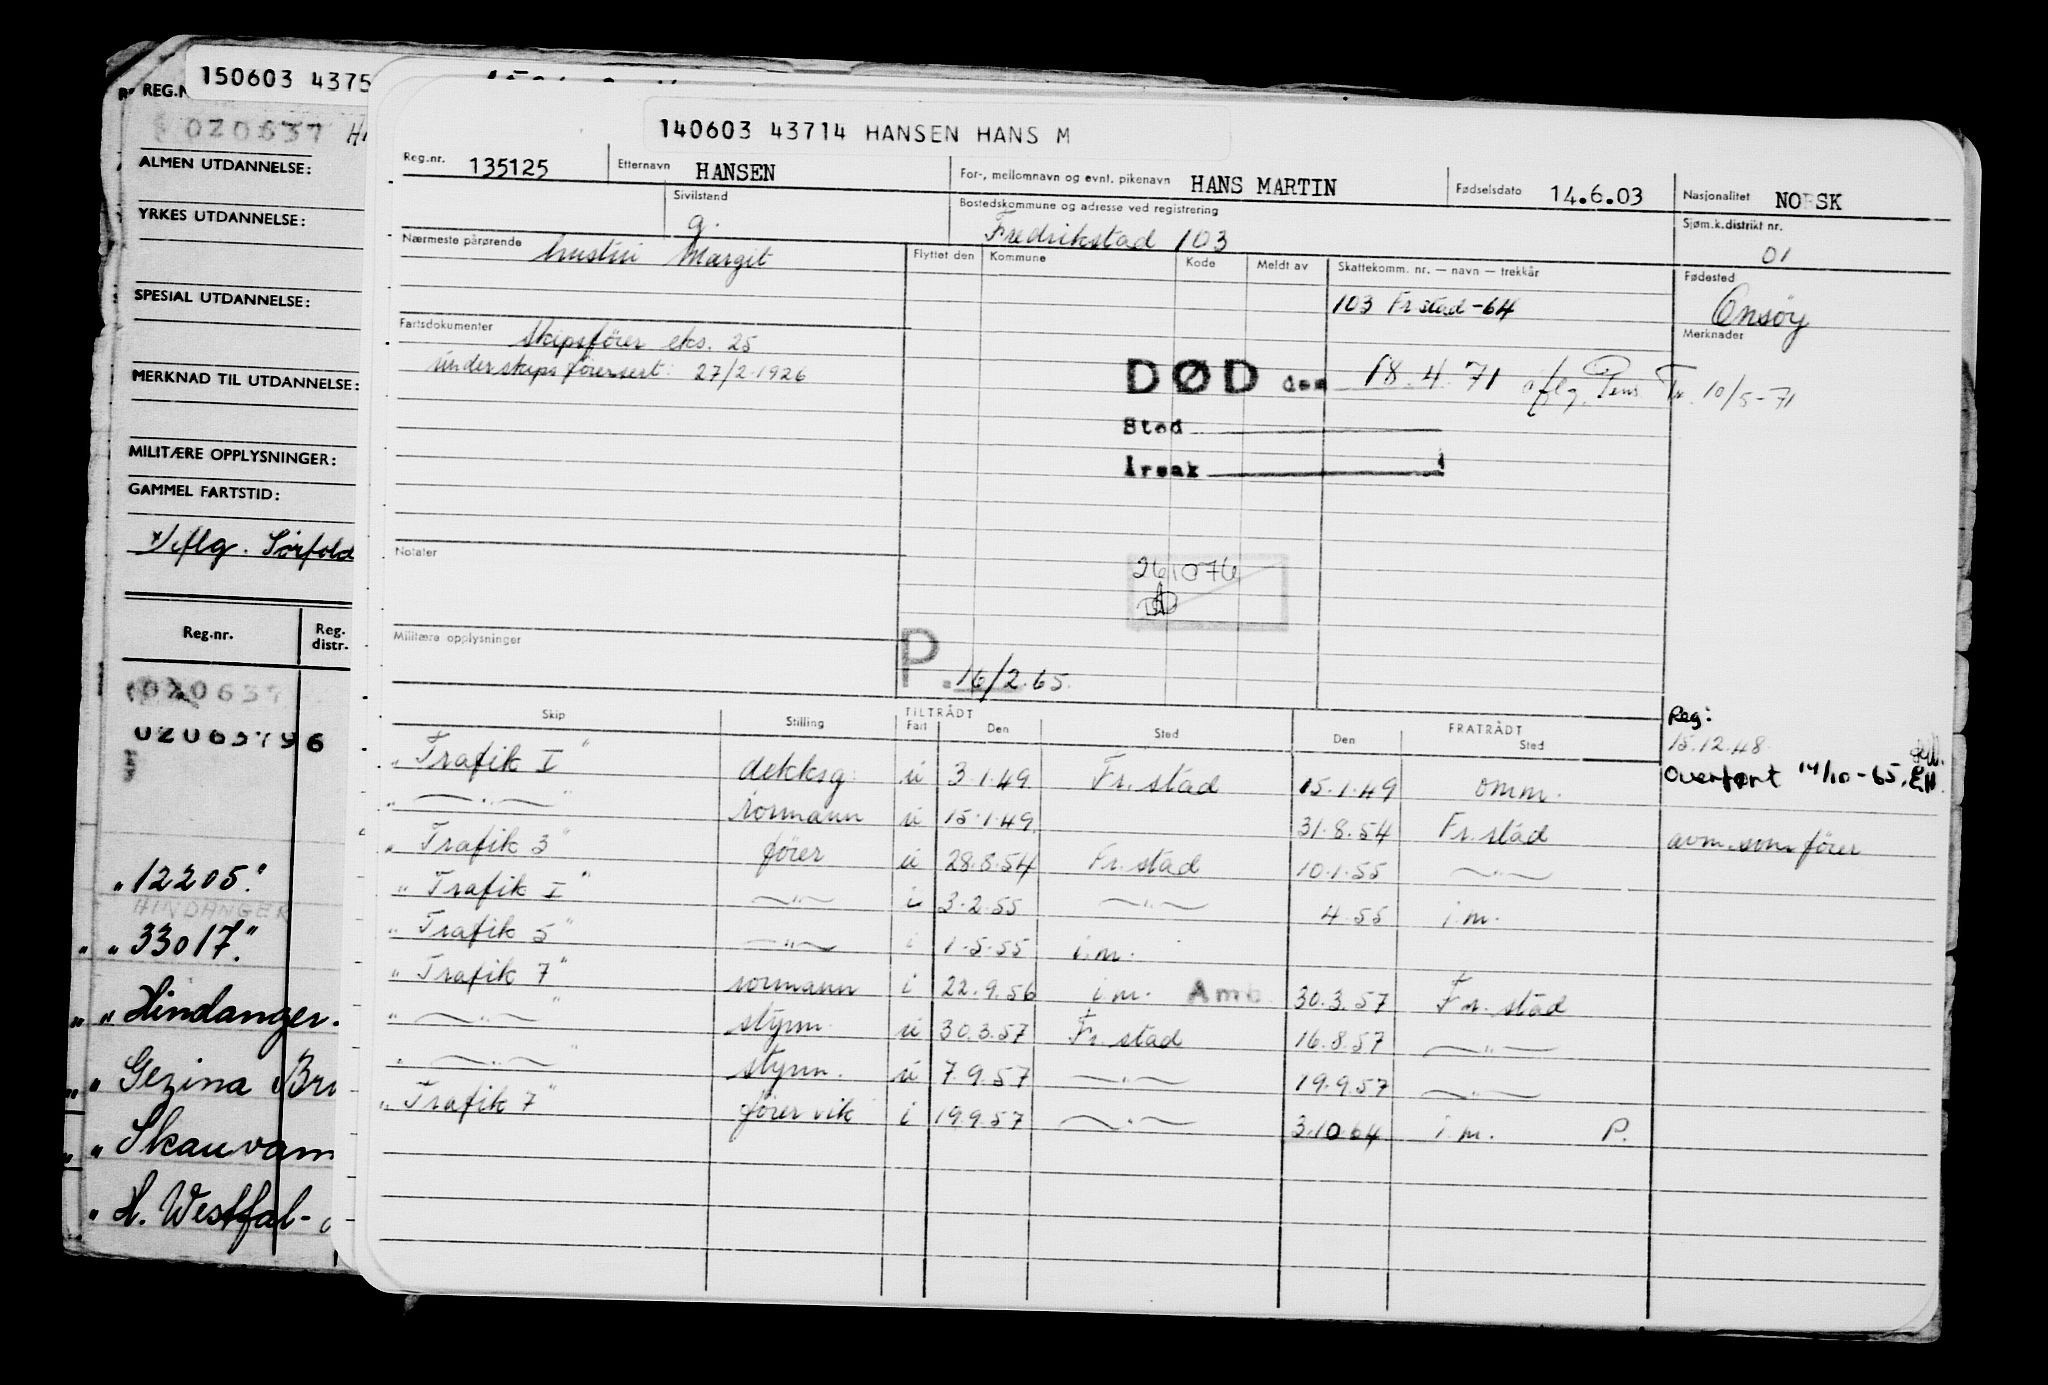 150603 4375
REG.N
020637 HA
ALMEN UTDANNELSE:
YRKES UTDANNELSE:
SPESIAL UTDANNELSE:
MERKNAD TIL UTDANNELSE:
MILITÆRE OPPLYSNINGER:
GAMMEL FARTSTID:
x/iflg. Sørfold
Reg.nr. Reg. distr.
020637
"12205."
HINDANGER
" "33017."
" "Hindanger.
" "Gezina Br
" "Skauvann
" H. Westfal-
140603 43714 HANSEN HANS M
Reg.nr. 135125 Etternavn HANSEN For-, mellomnavn og evnt. pikenavn HANS MARTIN Fødselsdato 14.6.03 Nasjonalitet NORSK
Sivilstand g. Bostedskommune og adresse ved registrering Fredrikstad 103 Sjøm.k.distrikt nr. 01
Nærmeste pårørende hustru Margit Flyttet den Kommune Kode Meldt av Skattekomm. nr. — navn — trekkår Fødested
103 Fr.stad-64 Onsøy
Fartsdokumenter skipsfører eks. 25 Merknader
underskipsførersert: 27/2-1926
DØD den 18.4.71 iflg. Pens. Tr. 10/5-71
Sted
Årsak
Notater
261076
Militære opplysninger
P. 16/2.65.
Skip Stilling TILTRÅDT Fart Den Sted Den FRATRÅDT Sted
Reg:
15.12.48
Overført 14/10-65. EH.
"Trafik I" dekksg. u 3.1.49 Fr.stad 15.1.49 omm.
" —"— " rormann u 15.1.49 31.8.54 Fr.stad avm. som fører
" Trafik 3" fører u 28.8.54 Fr.stad 10.1.55 —"—
" Trafik I" —"— i 3.2.55 —"— 4.55 i.m.
" Trafik 5" —"— i 1.5.55 i.m.
" Trafik 7" rormann i 22.9.56 i.m. Amb 30.3.57 Fr.stad
" —"— " styrm. u 30.3.57 Fr.stad 16.8.57 —"—
" —"— " styrm. u 7.9.57 —"— 19.9.57 —"—
" Trafik 7" fører vik i 19.9.57 —"— 3.10.64 i.m. P.